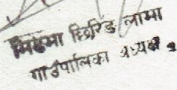 मिङमा छिरिङ लामा
गाउँपालिका अध्यक्ष